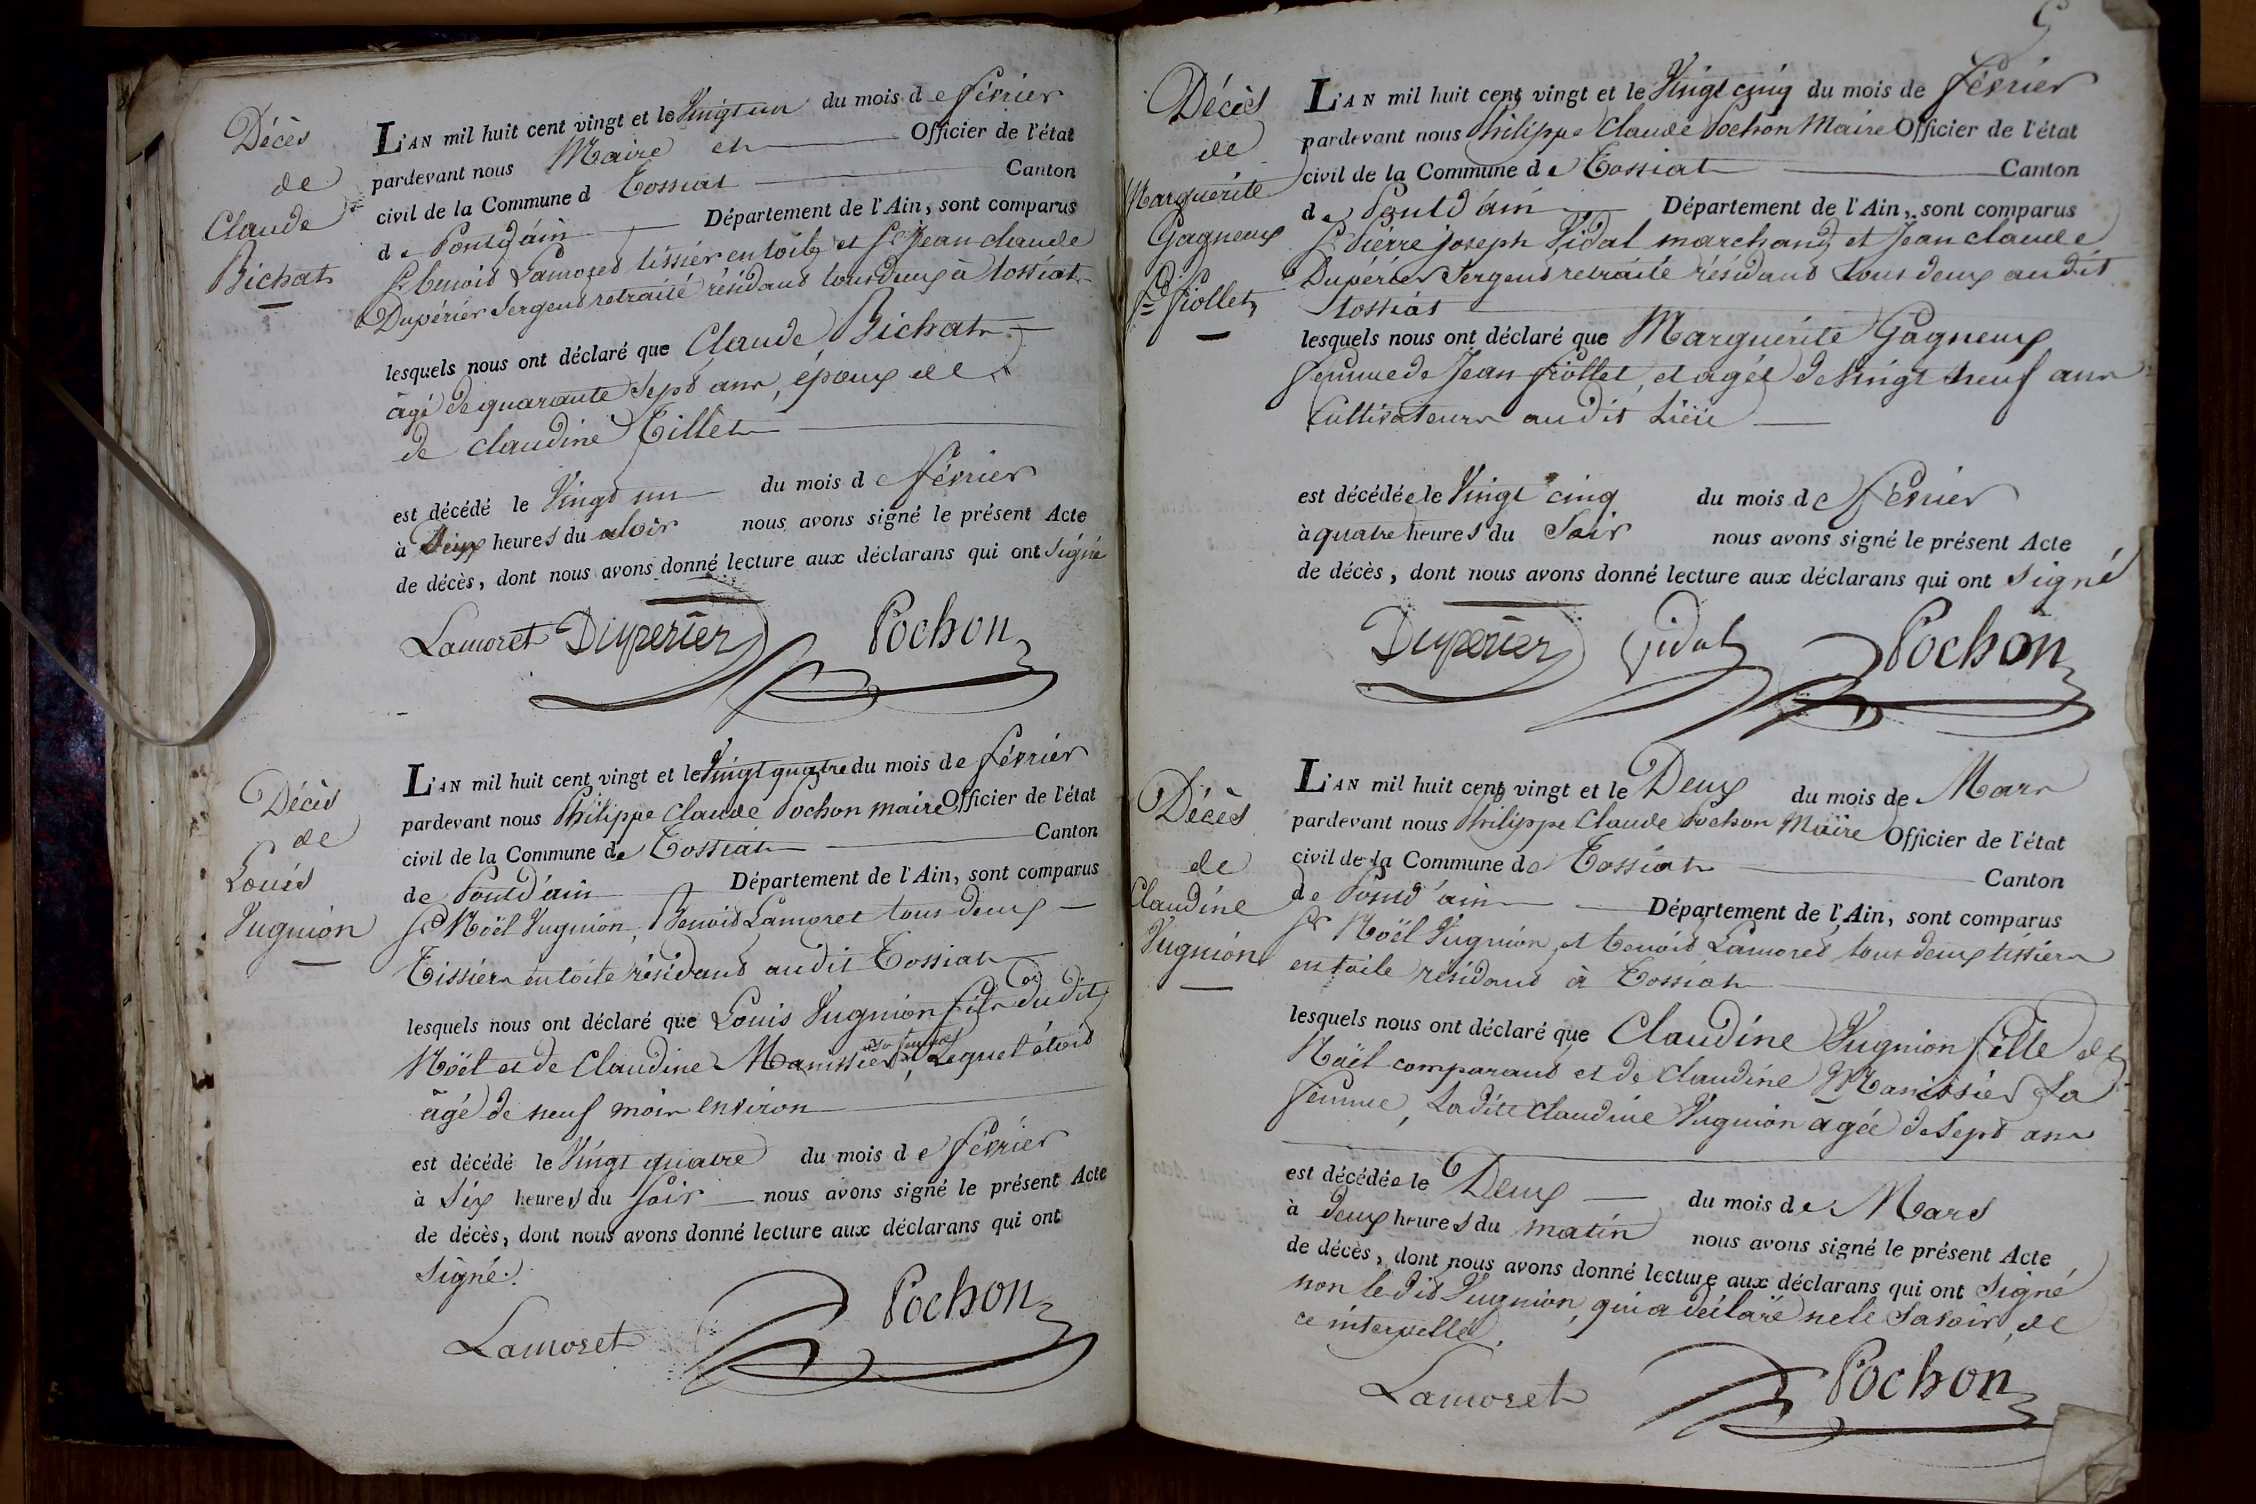 Décès
de
Claude
Bichat
L'AN mil huit cent vingt et le Vingt un du mois de février
pardevant nous Maire et Officier de l'état
civil de la Commune d Tossiat Canton
de Pontd'ain Département de l'Ain, sont comparus
Sr benoid Lamoret tissier en toile et Sr Jean claude
Dupérier Sergent retraité résidant tous deux à tossiat
lesquels nous ont déclaré que Claude Bichat
âgé de quarante Sept ans, époux de
de claudine Tillet
est décédé le Vingt un du mois de février
à Deux heures du soir nous avons signé le présent Acte
de décès, dont nous avons donné lecture aux déclarans qui ont Signé
Lamoret Duperier Pochon
Décès
de
Louis
Vugnion
L'AN mil huit cent vingt et le Vingt quatre du mois de février
pardevant nous Philippe Claude Pochon maire Officier de l'état
civil de la Commune de Tossiat Canton
de Pontd'ain Département de l'Ain, sont comparus
Sr Noël Vugnion, Benoid Lamoret tous deux
Tissiers en toile résidant audit Tossiat
lesquels nous ont déclaré que Louis Vugnion fils dudit
Noël et de Claudine Manissier sa femme, Lequel étoit
âgé de neuf mois environ
est décédé le Vingt quatre du mois de février
à Six heures du Soir nous avons signé le présent Acte
de décès, dont nous avons donné lecture aux déclarans qui ont
Signé.
Lamoret Pochon
5
Décès
de
Marguérite
Gagneux
fe fiollet
L'AN mil huit cent vingt et le Vingt cinq du mois de février
pardevant nous Philippe Claude Pochon Maire Officier de l'état
civil de la Commune de Tossiat Canton
de Pontd'ain Département de l'Ain, sont comparus
Sr Pierre joseph Vidal marchand et Jean claude
Dupérier Sergent retraité résidant tous deux audit
tossiat
lesquels nous ont déclaré que Marguérite Gagneux
femme de Jean fiollet, et agée de Vingt neuf ans
Cultivateurs audit Lieu
est décédée le Vingt cinq du mois de février
à quatre heures du Soir nous avons signé le présent Acte
de décès, dont nous avons donné lecture aux déclarans qui ont Signé
Duperier Vidal Pochon
Décès
de
Claudine
Vugnion
L'AN mil huit cent vingt et le Deux du mois de Mars
pardevant nous Philippe Claude Pochon Maire Officier de l'état
civil de la Commune de Tossiat Canton
de Pontd'ain Département de l'Ain, sont comparus
Sr Noël Vugnion, et benoid Lamoret tous deux tissiers
en toile résidant à Tossiat
lesquels nous ont déclaré que Claudine Vugnion fille de
Noël comparant et de Claudine Manissier Sa
femme, Ladite Claudine Vugnion agée de Sept ans
est décédée le Deux du mois de Mars
à deux heures du matin nous avons signé le présent Acte
de décès, dont nous avons donné lecture aux déclarans qui ont Signé
non ledit Vugnion, qui a déclaré ne le Savoir, de
ce interpellé.
Lamoret Pochon